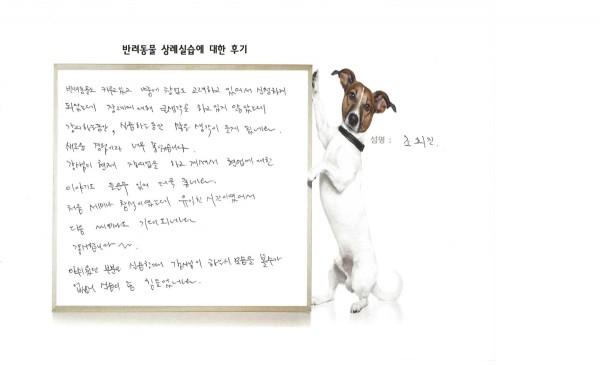 반려동물 상례실습에 대한 후기
반려동물도 키우고있고 나중에 창업도 고려하고 있어서 신청하게
되었는데 장례에 대해 큰생각을 하고 있지 않았는데
강의하는동안, 실습하는동안 많은 생각이 들게 됩니다.
새로운 경험이라 너무 좋았습니다.
강사님이 현재 하고 계셔서 현업에 대한
이야기도 들을수 있어 더욱 좋네요.
처음 세미나 참석이었는데 유익한 시간이었어서
다음 세미나도 기대되네요
감사합니다~
아쉬웠던 부분은 실습할때 강사님이 하는 모습을 볼수가
없어서 실습이 좀 힘들었네요.
성명 : 조희진.